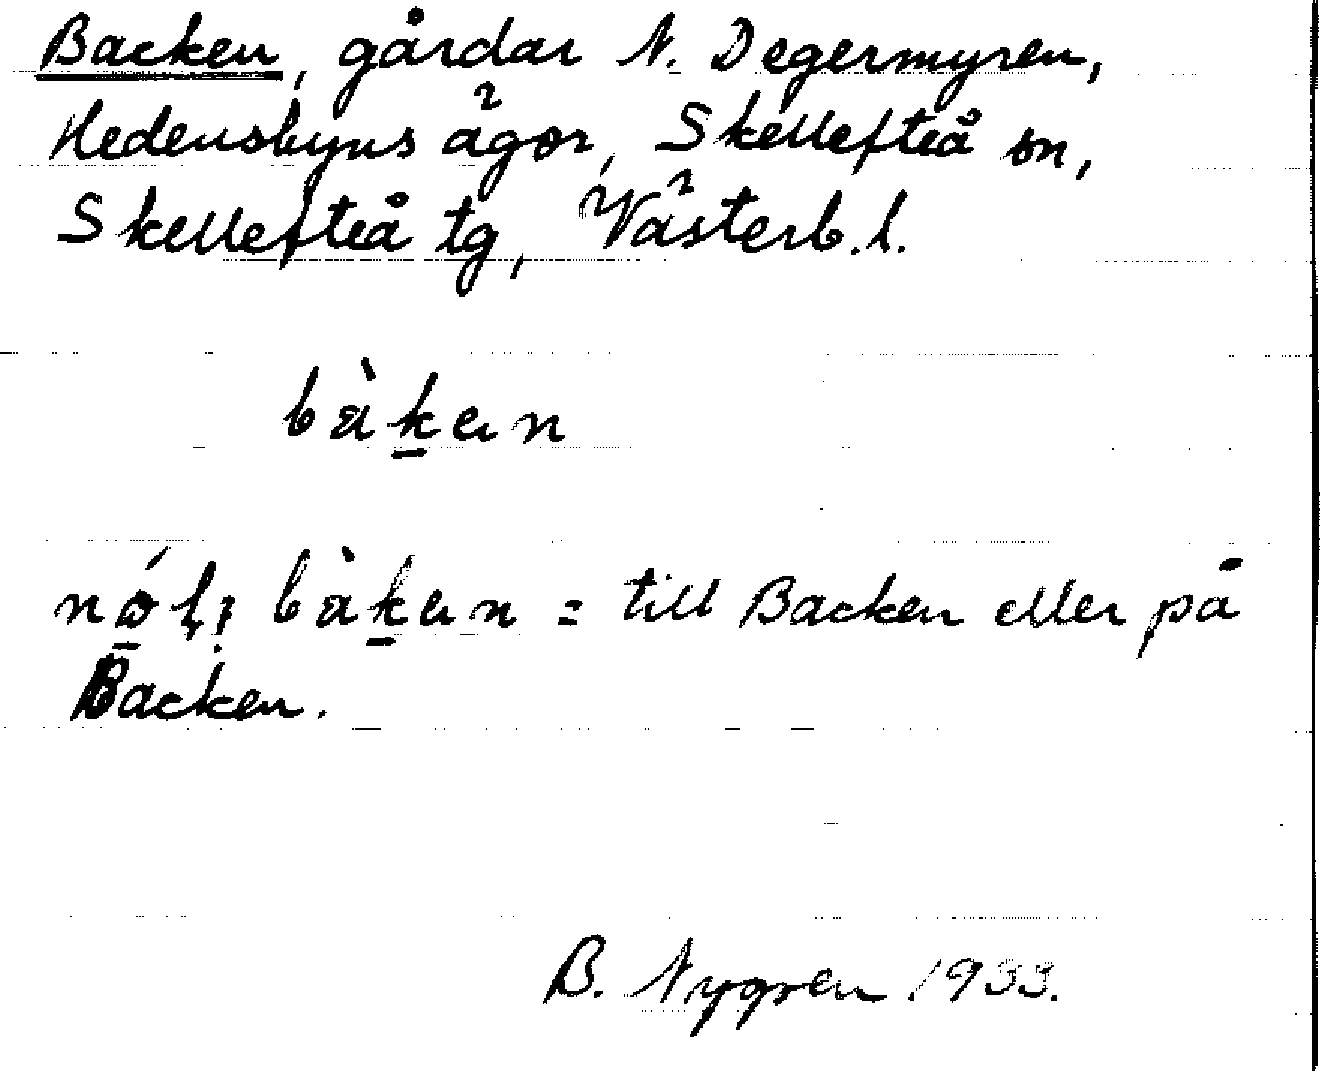 Backen, gårdar N. Degermyren,
Hedensbyns ägor, Skellefteå sn,
Skellefteå tg, Västerb. l.
bàk̠en
bàk̠en = till Backen eller på
Backen.
B. Nygren 1933.